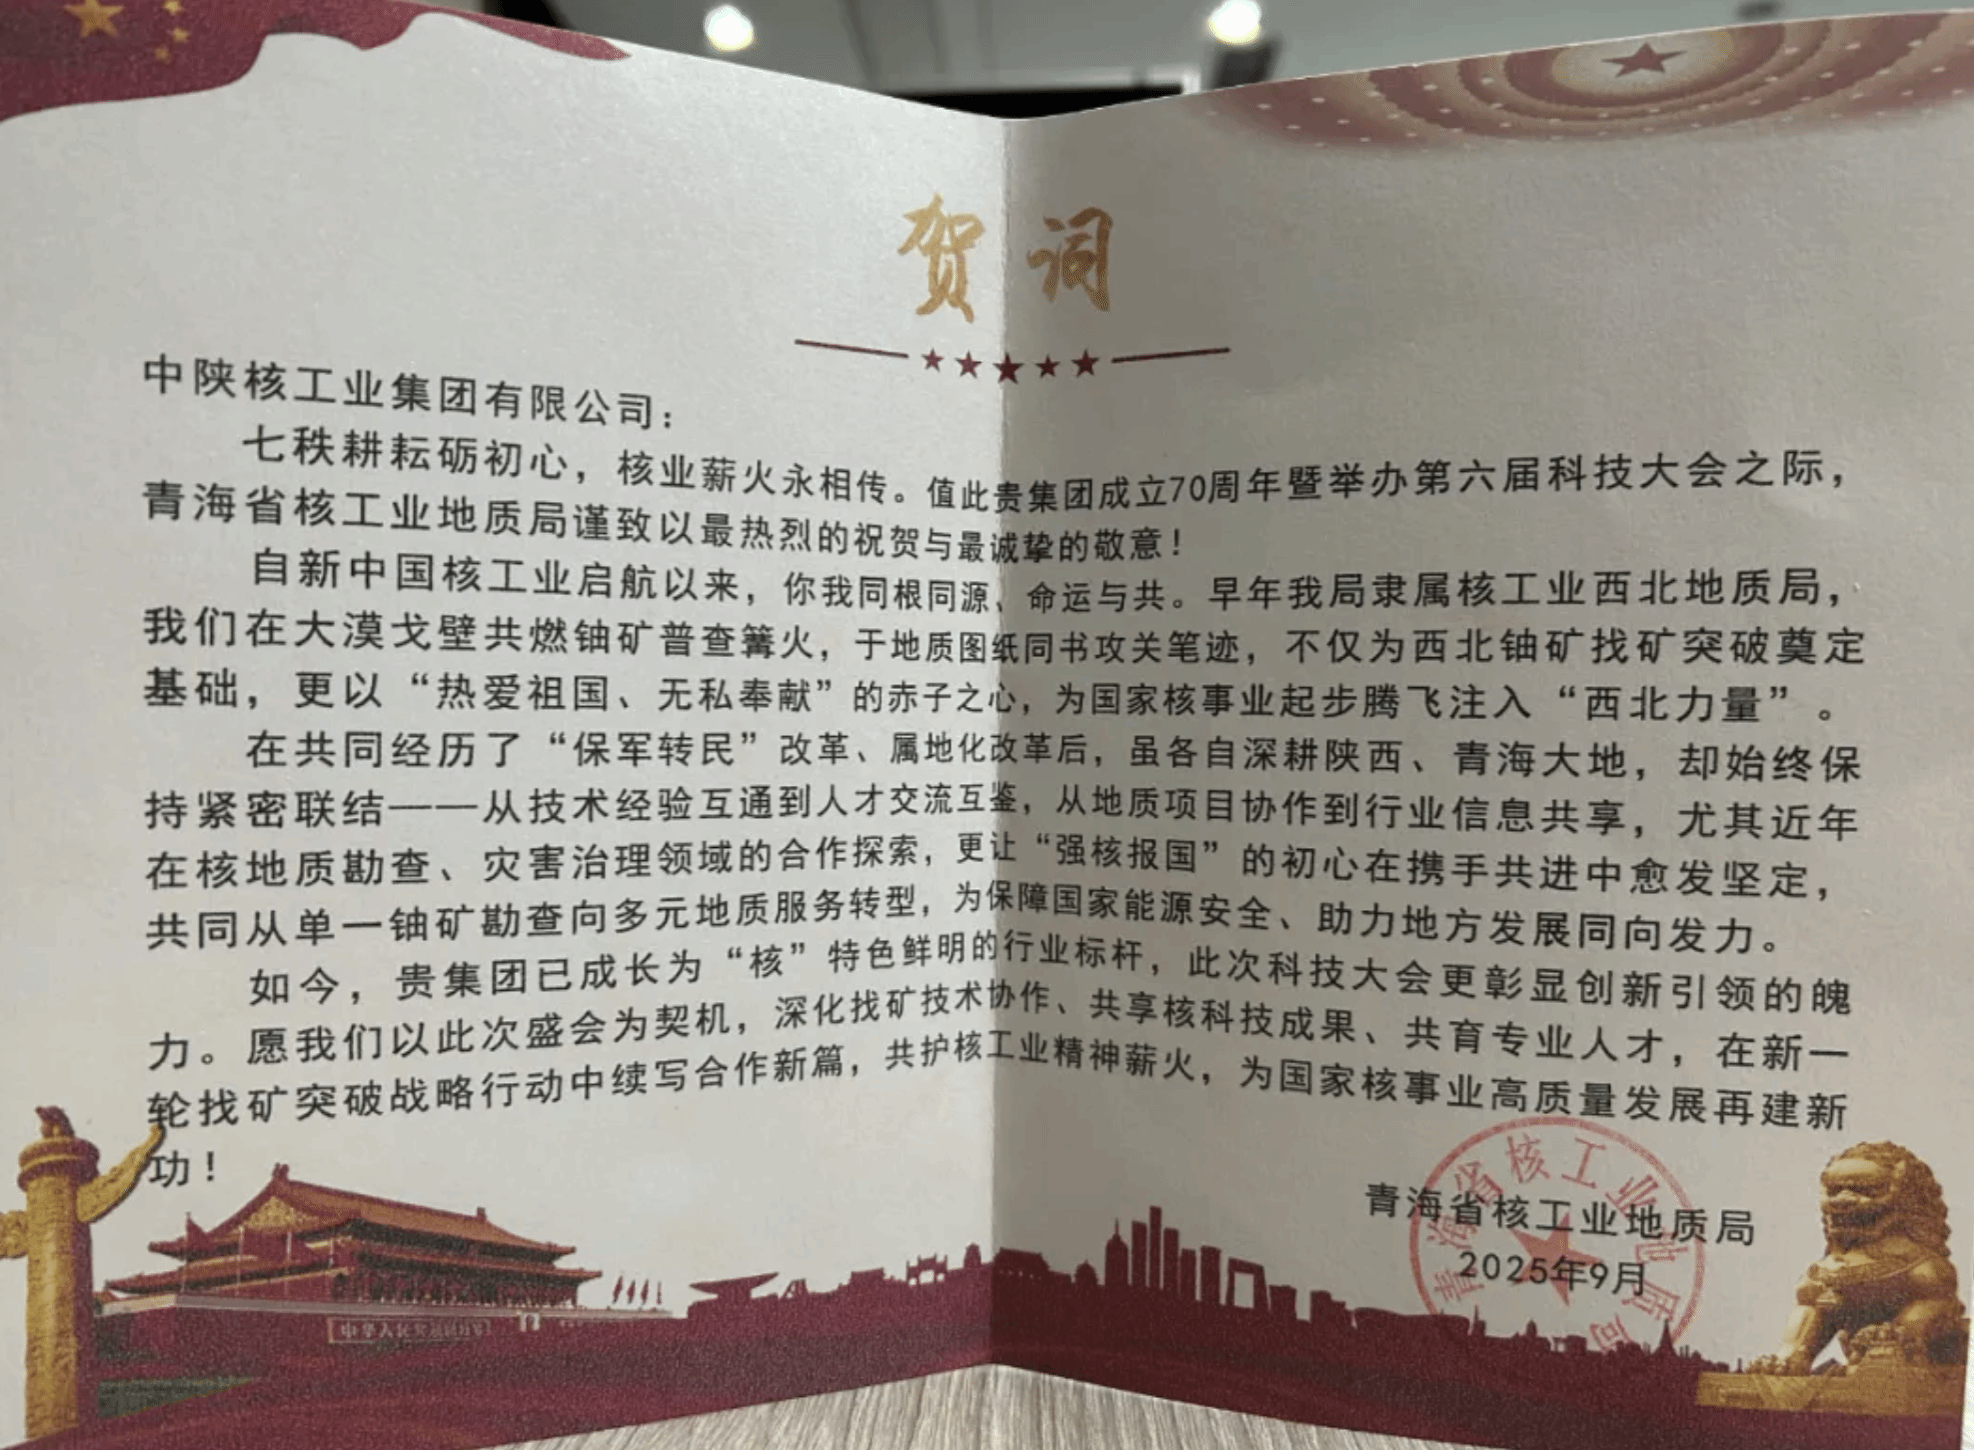 贺词
中陕核工业集团有限公司：
七秩耕耘砺初心，核业薪火永相传。值此贵集团成立70周年暨举办第六届科技大会之际，
青海省核工业地质局谨致以最热烈的祝贺与最诚挚的敬意！
自新中国核工业启航以来，你我同根同源、命运与共。早年我局隶属核工业西北地质局，
我们在大漠戈壁共燃铀矿普查篝火，于地质图纸同书攻关笔迹，不仅为西北铀矿找矿突破奠定
基础，更以“热爱祖国、无私奉献”的赤子之心，为国家核事业起步腾飞注入“西北力量”。
在共同经历了“保军转民”改革、属地化改革后，虽各自深耕陕西、青海大地，却始终保
持紧密联结——从技术经验互通到人才交流互鉴，从地质项目协作到行业信息共享，尤其近年
在核地质勘查、灾害治理领域的合作探索，更让“强核报国”的初心在携手共进中愈发坚定，
共同从单一铀矿勘查向多元地质服务转型，为保障国家能源安全、助力地方发展同向发力。
如今，贵集团已成长为“核”特色鲜明的行业标杆，此次科技大会更彰显创新引领的魄
力。愿我们以此次盛会为契机，深化找矿技术协作、共享核科技成果、共育专业人才，在新一
轮找矿突破战略行动中续写合作新篇，共护核工业精神薪火，为国家核事业高质量发展再建新
功！
青海省核工业地质局
2025年9月
青海省核工业地质局